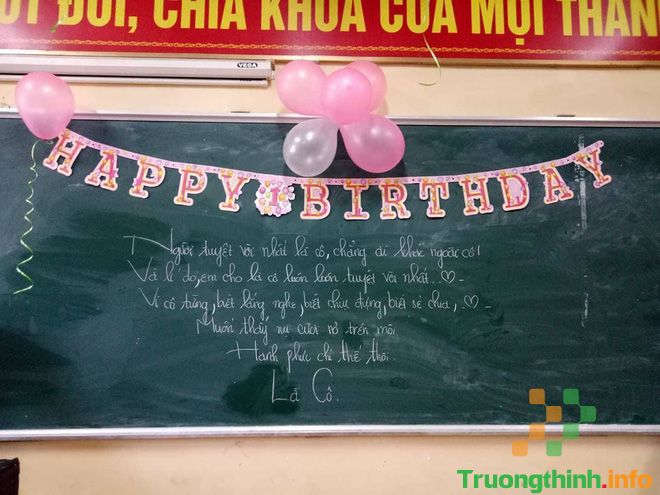 ỐT ĐỜI, CHÌA KHÓA CỦA MỌI THÀN
VEGA
HAPPY 1 BIRTHDAY
Người tuyệt vời nhất là cô, chẳng ai khác ngoài cô!
Và lí do, em cho là cô luôn luôn tuyệt vời nhất. ♡ -
Vì cô từng, biết lắng nghe, biết chịu đựng, biết sẻ chia, ♡ -
Muốn thấy nụ cười nở trên môi
Hạnh phúc chỉ thế thôi.
Là Cô.
Truongthinh.info